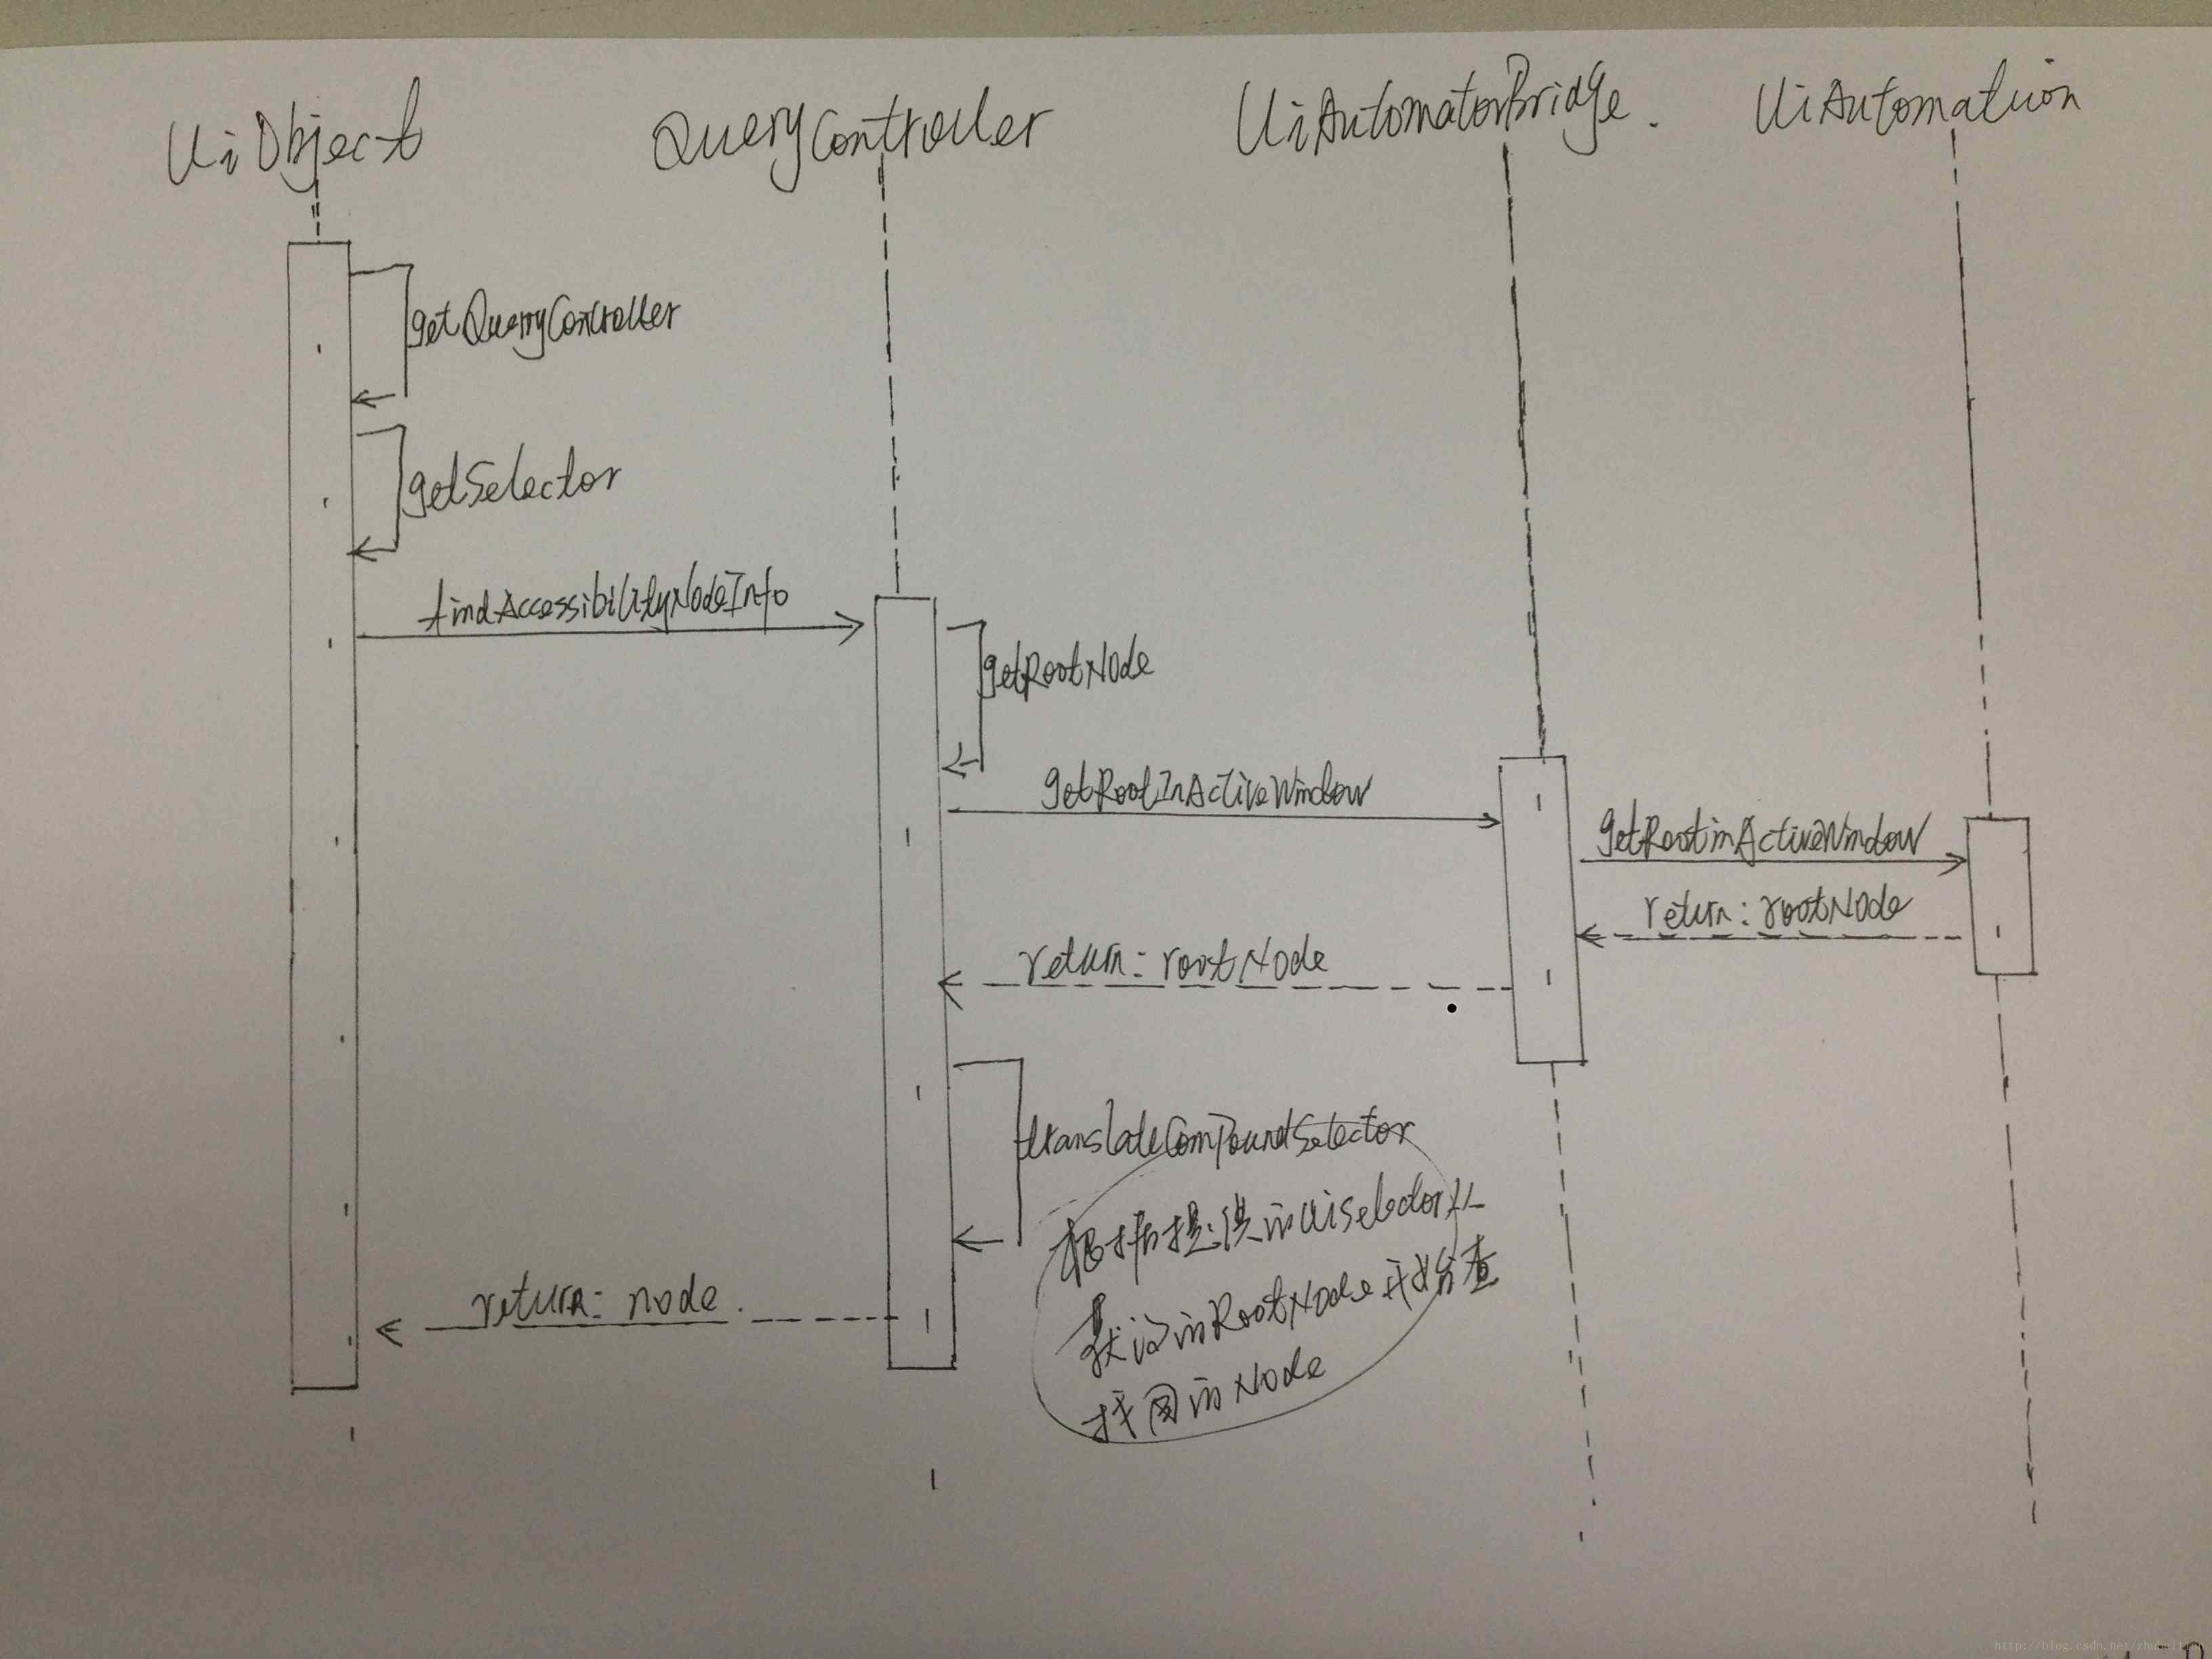 UiObject
QueryController
UiAutomatorBridge.
UiAutomation
getQuerryController
getSelector
findAccessibilityNodeInfo
getRootNode
getRootInActiveWindow
getRootinActiveWindow
return: rootNode
return: rootNode
translateCompoundSelector
根据提供的UiSelector从
获设的RootNode开始查
找目的Node
return: node.